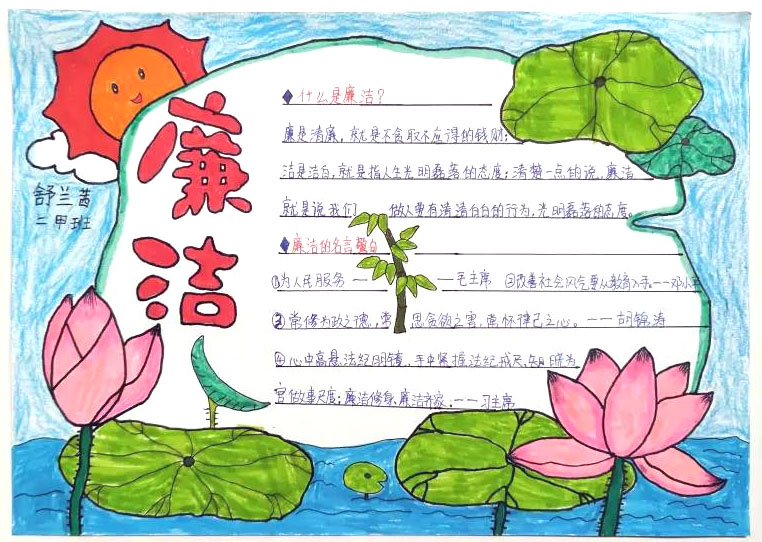 廉洁
舒兰茜
二甲班
◆什么是廉洁?
廉是清廉，就是不贪取不应得的钱财；
洁是洁白，就是指人生光明磊落的态度；清楚一点的说，廉洁
就是说我们 做人要有清清白白的行为，光明磊落的态度。
◆廉洁的名言警句
①为人民服务—— 毛主席 ②改善社会风气要从教育入手。——邓小平
③常修为政之德，常 思贪欲之害，常怀律己之心。——胡锦涛
④心中高悬法纪明镜，手中紧握法纪戒尺，知晓为
官做事尺度；廉洁修身、廉洁齐家。——习主席